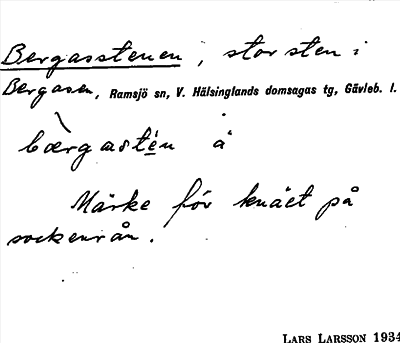 Bergasstenen, stor sten i
Bergasen, Ramsjö sn, V. Hälsinglands domsagas tg, Gävleb. l.
bærgasté̱n å
Märke för knäet på
sockenrån.
LARS LARSSON 1934